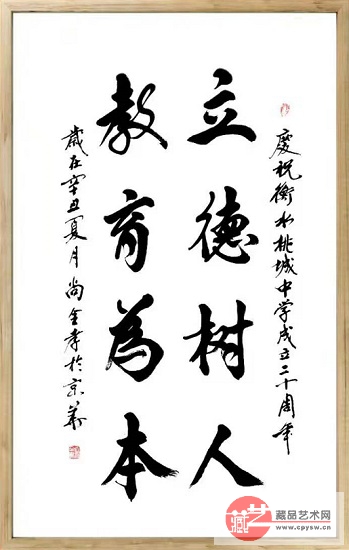 慶祝衡水桃城中学成立二十周年
立德树人
教育為本
歲在辛丑夏月尚金孝於京華
藏艺
藏品艺术网
www.cpysw.cn